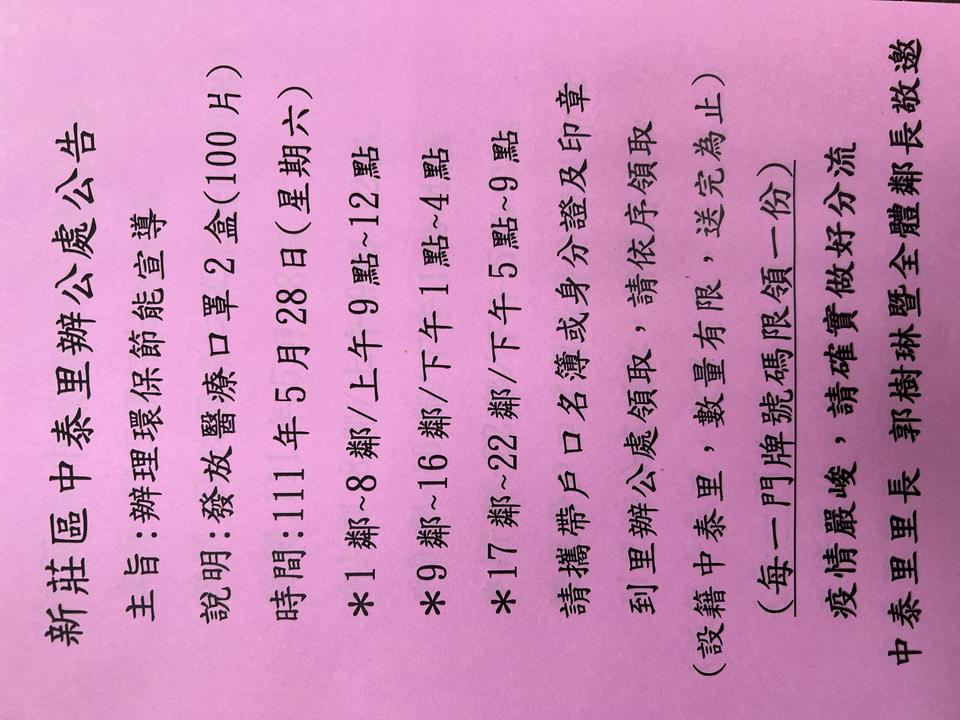 新莊區中泰里辦公處公告
主旨:辦理環保節能宣導
說明:發放醫療口罩2盒(100片)
時間:111年5月28日(星期六)
*1鄰~8鄰/上午9點~12點
*9鄰~16鄰/下午1點~4點
*17鄰~22鄰/下午5點~9點
請攜帶戶口名簿或身分證及印章
到里辦公處領取,請依序領取
(設籍中泰里,數量有限,送完為止)
(每一門牌號碼限領一份)
疫情嚴峻,請確實做好分流
中泰里里長 郭樹琳暨全體鄰長敬邀